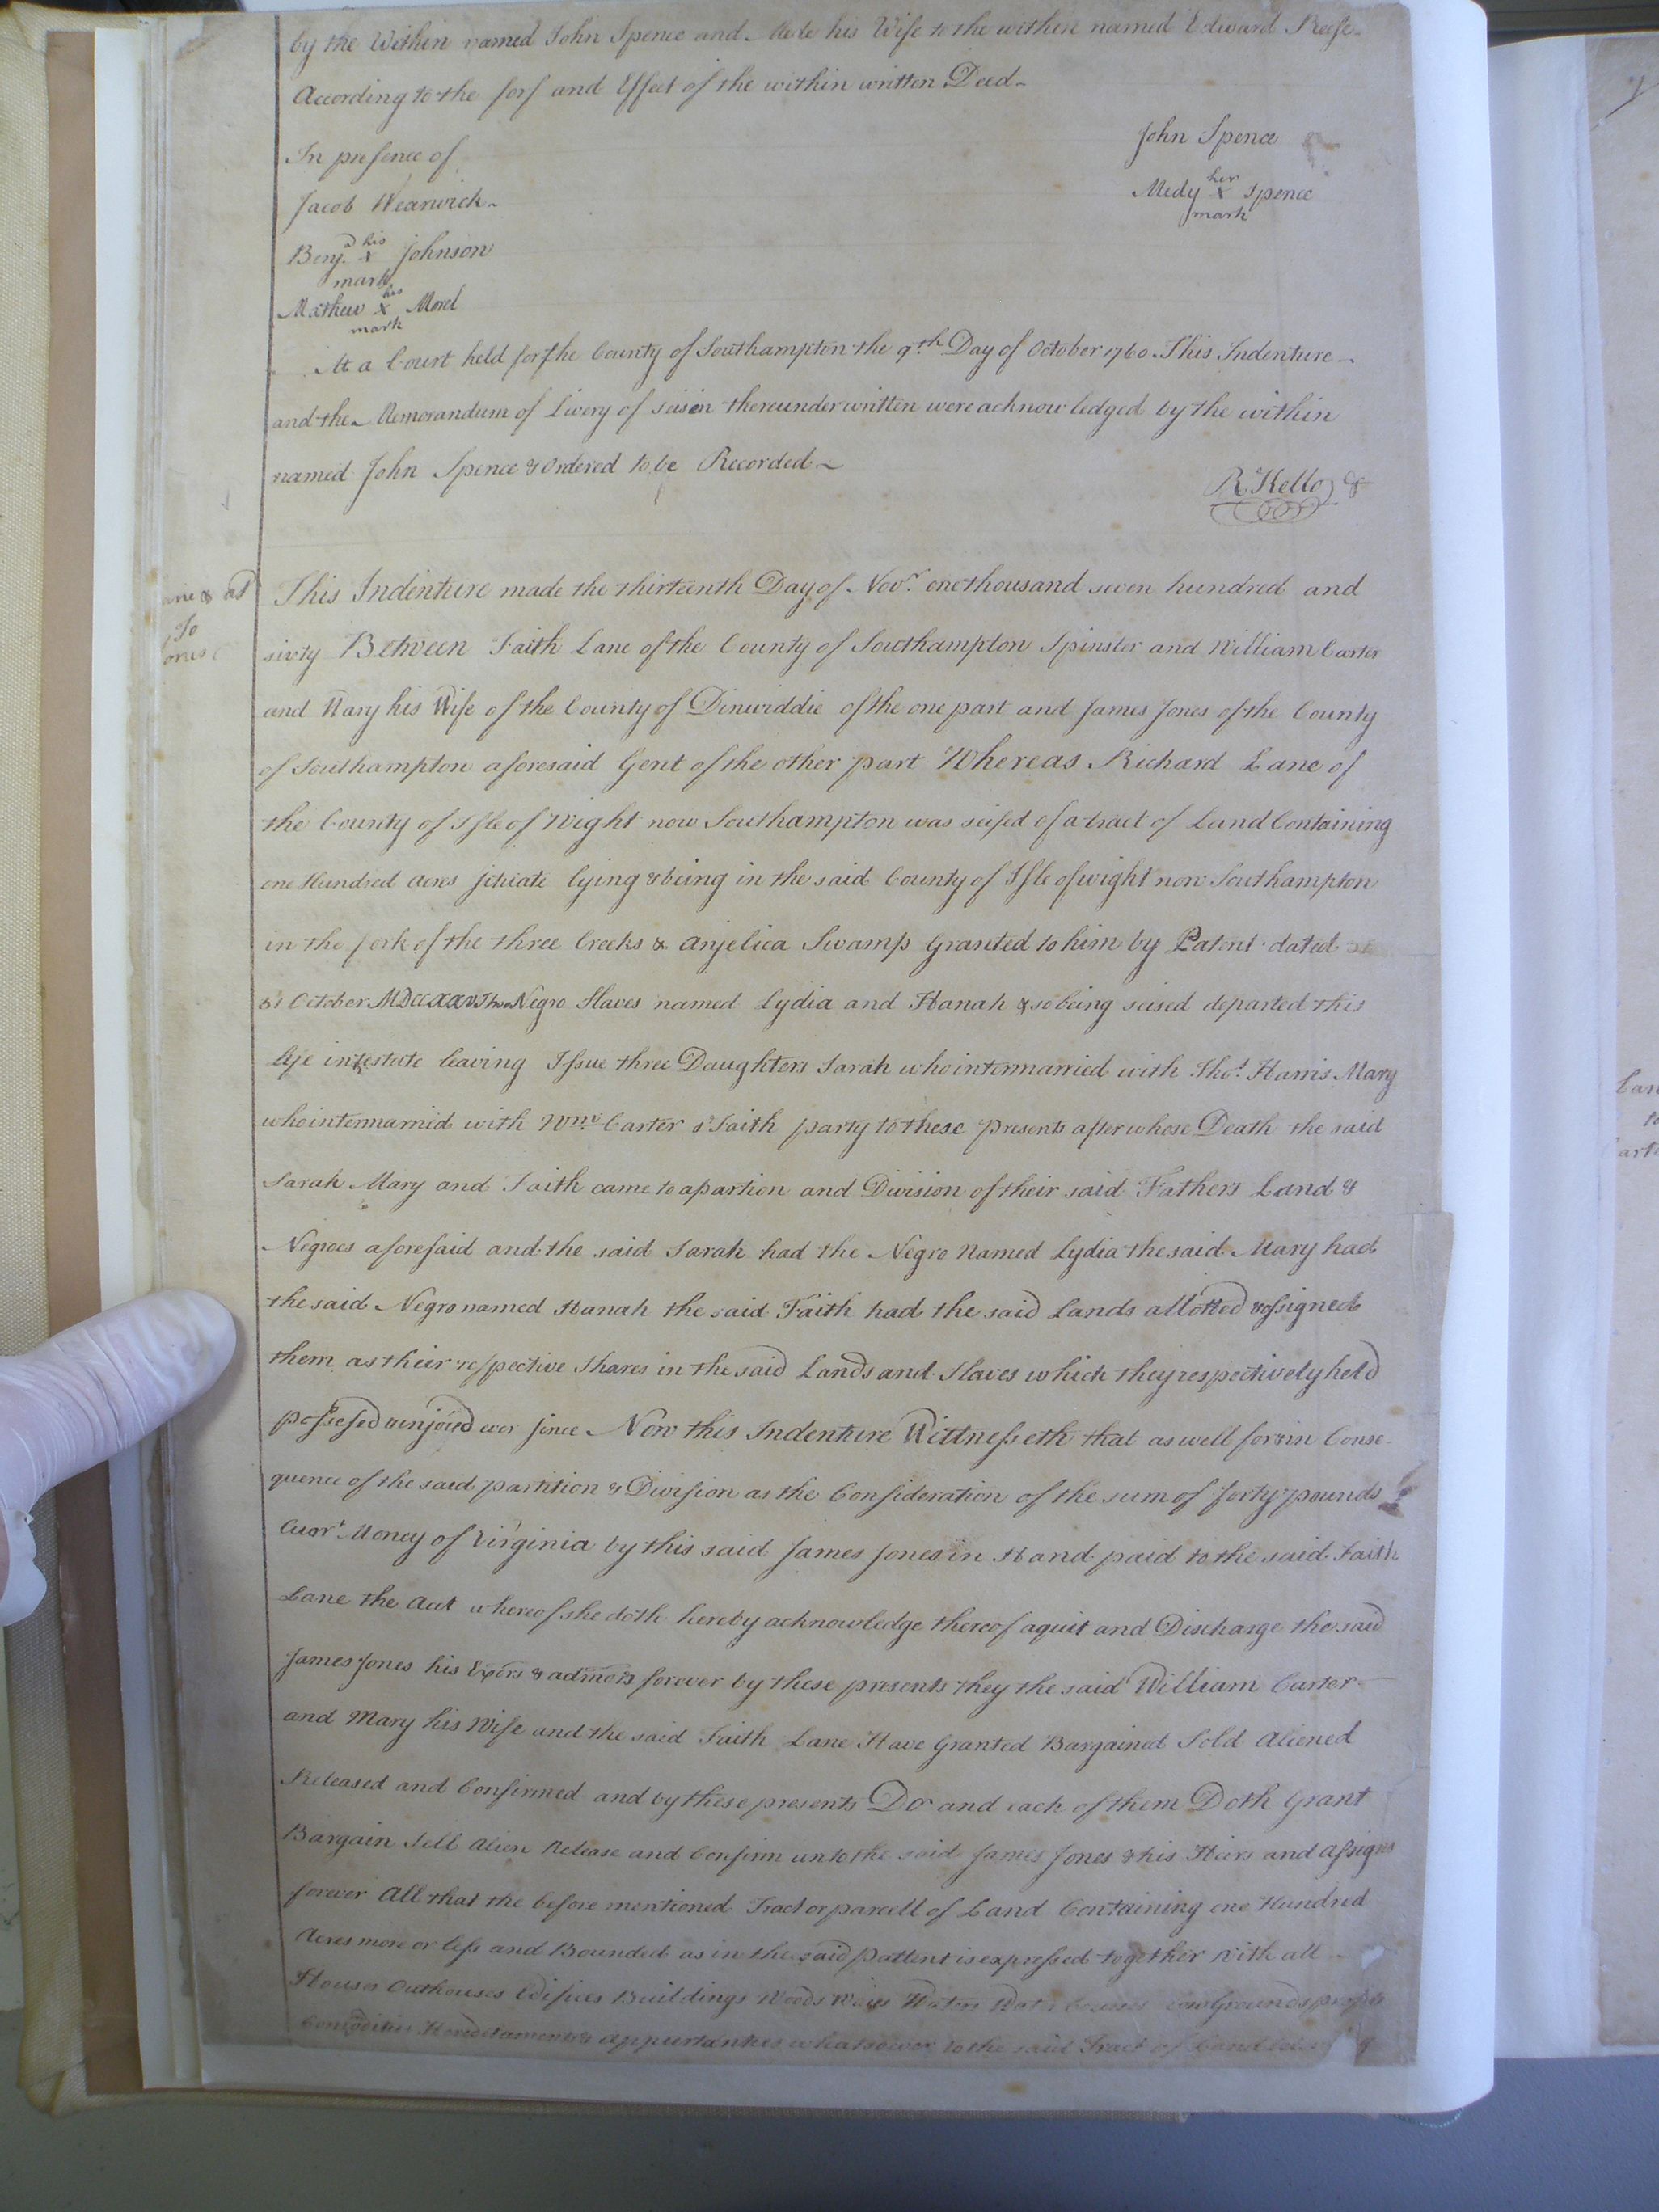 by the Within named John Spence and Mede his Wife to the within named Edward Reese
According to the forf and Effect of the within written Deed
In presence of
John Spence
Jacob Wearwick
Medy her X mark Spence
Benj.a his X mark Johnson
Mathew his X mark Morel
At a Court held for the County of Southampton the 9th Day of October 1760. This Indenture
and the Memorandum of Livery of seisen thereunder written were acknowledged by the within
named John Spence & Ordered to be Recorded
R. Kello
ane & al
To
ones
This Indenture made the thirteenth Day of Novr. one thousand seven hundred and
sixty Between Faith Lane of the County of Southampton Spinster and William Carter
and Mary his Wife of the County of Dinwiddie of the one part and James Jones of the County
of Southampton aforesaid Gent of the other part Whereas Richard Lane of
the County of Isle of Wight now Southampton was seised of a tract of Land Containing
one Hundred Acres situate lying & being in the said County of Isle of wight now Southampton
in the fork of the three Creeks & Anjelica Swamp Granted to him by Patent dated
October Negro Slaves named Lydia and Hanah & so being seised departed this
life intestate leaving Issue three Daughters Sarah who intermarried with Thos. Harris Mary
who intermarried with Wm. Carter & Faith party to these presents after whose Death the said
Sarah Mary and Faith came to apartion and Division of their said Fathers Land &
Negroes aforesaid and the said Sarah had the Negro Named Lydia the said Mary had
the said Negro named Hanah the said Faith had the said Lands allotted & assigned
them as their respective Shares in the said Lands and Slaves which they respectively held
possesed & injoied ever since Now this Indenture Wittnesseth that as well for & in Conse
quence of the said partition & Division as the Consideration of the sum of forty pounds
Curr.t Money of Virginia by this said James Jones in Hand paid to the said Faith
Lane the whereof she doth hereby acknowledge thereof aquit and Discharge the said
James Jones his Exors & admors forever by these presents they the said William Carter
and Mary his Wife and the said Faith Lane Have Granted Bargained Sold Aliened
Released and Confirmed and by these presents Do and each of them Doth Grant
Bargain Sell Alien Release and Confirm unto the said James Jones & his Heirs and Assigns
forever All that the before mentioned Tract or parcell of Land Containing one Hundred
Acres more or less and Bounded as in the said pattent is expressed together with all
Houses Outhouses Edifices Buildings Woods Ways Waters Water Courses Low Grounds
Comodities Hereditaments & appurtankes whatsoever to the said Tract of Land